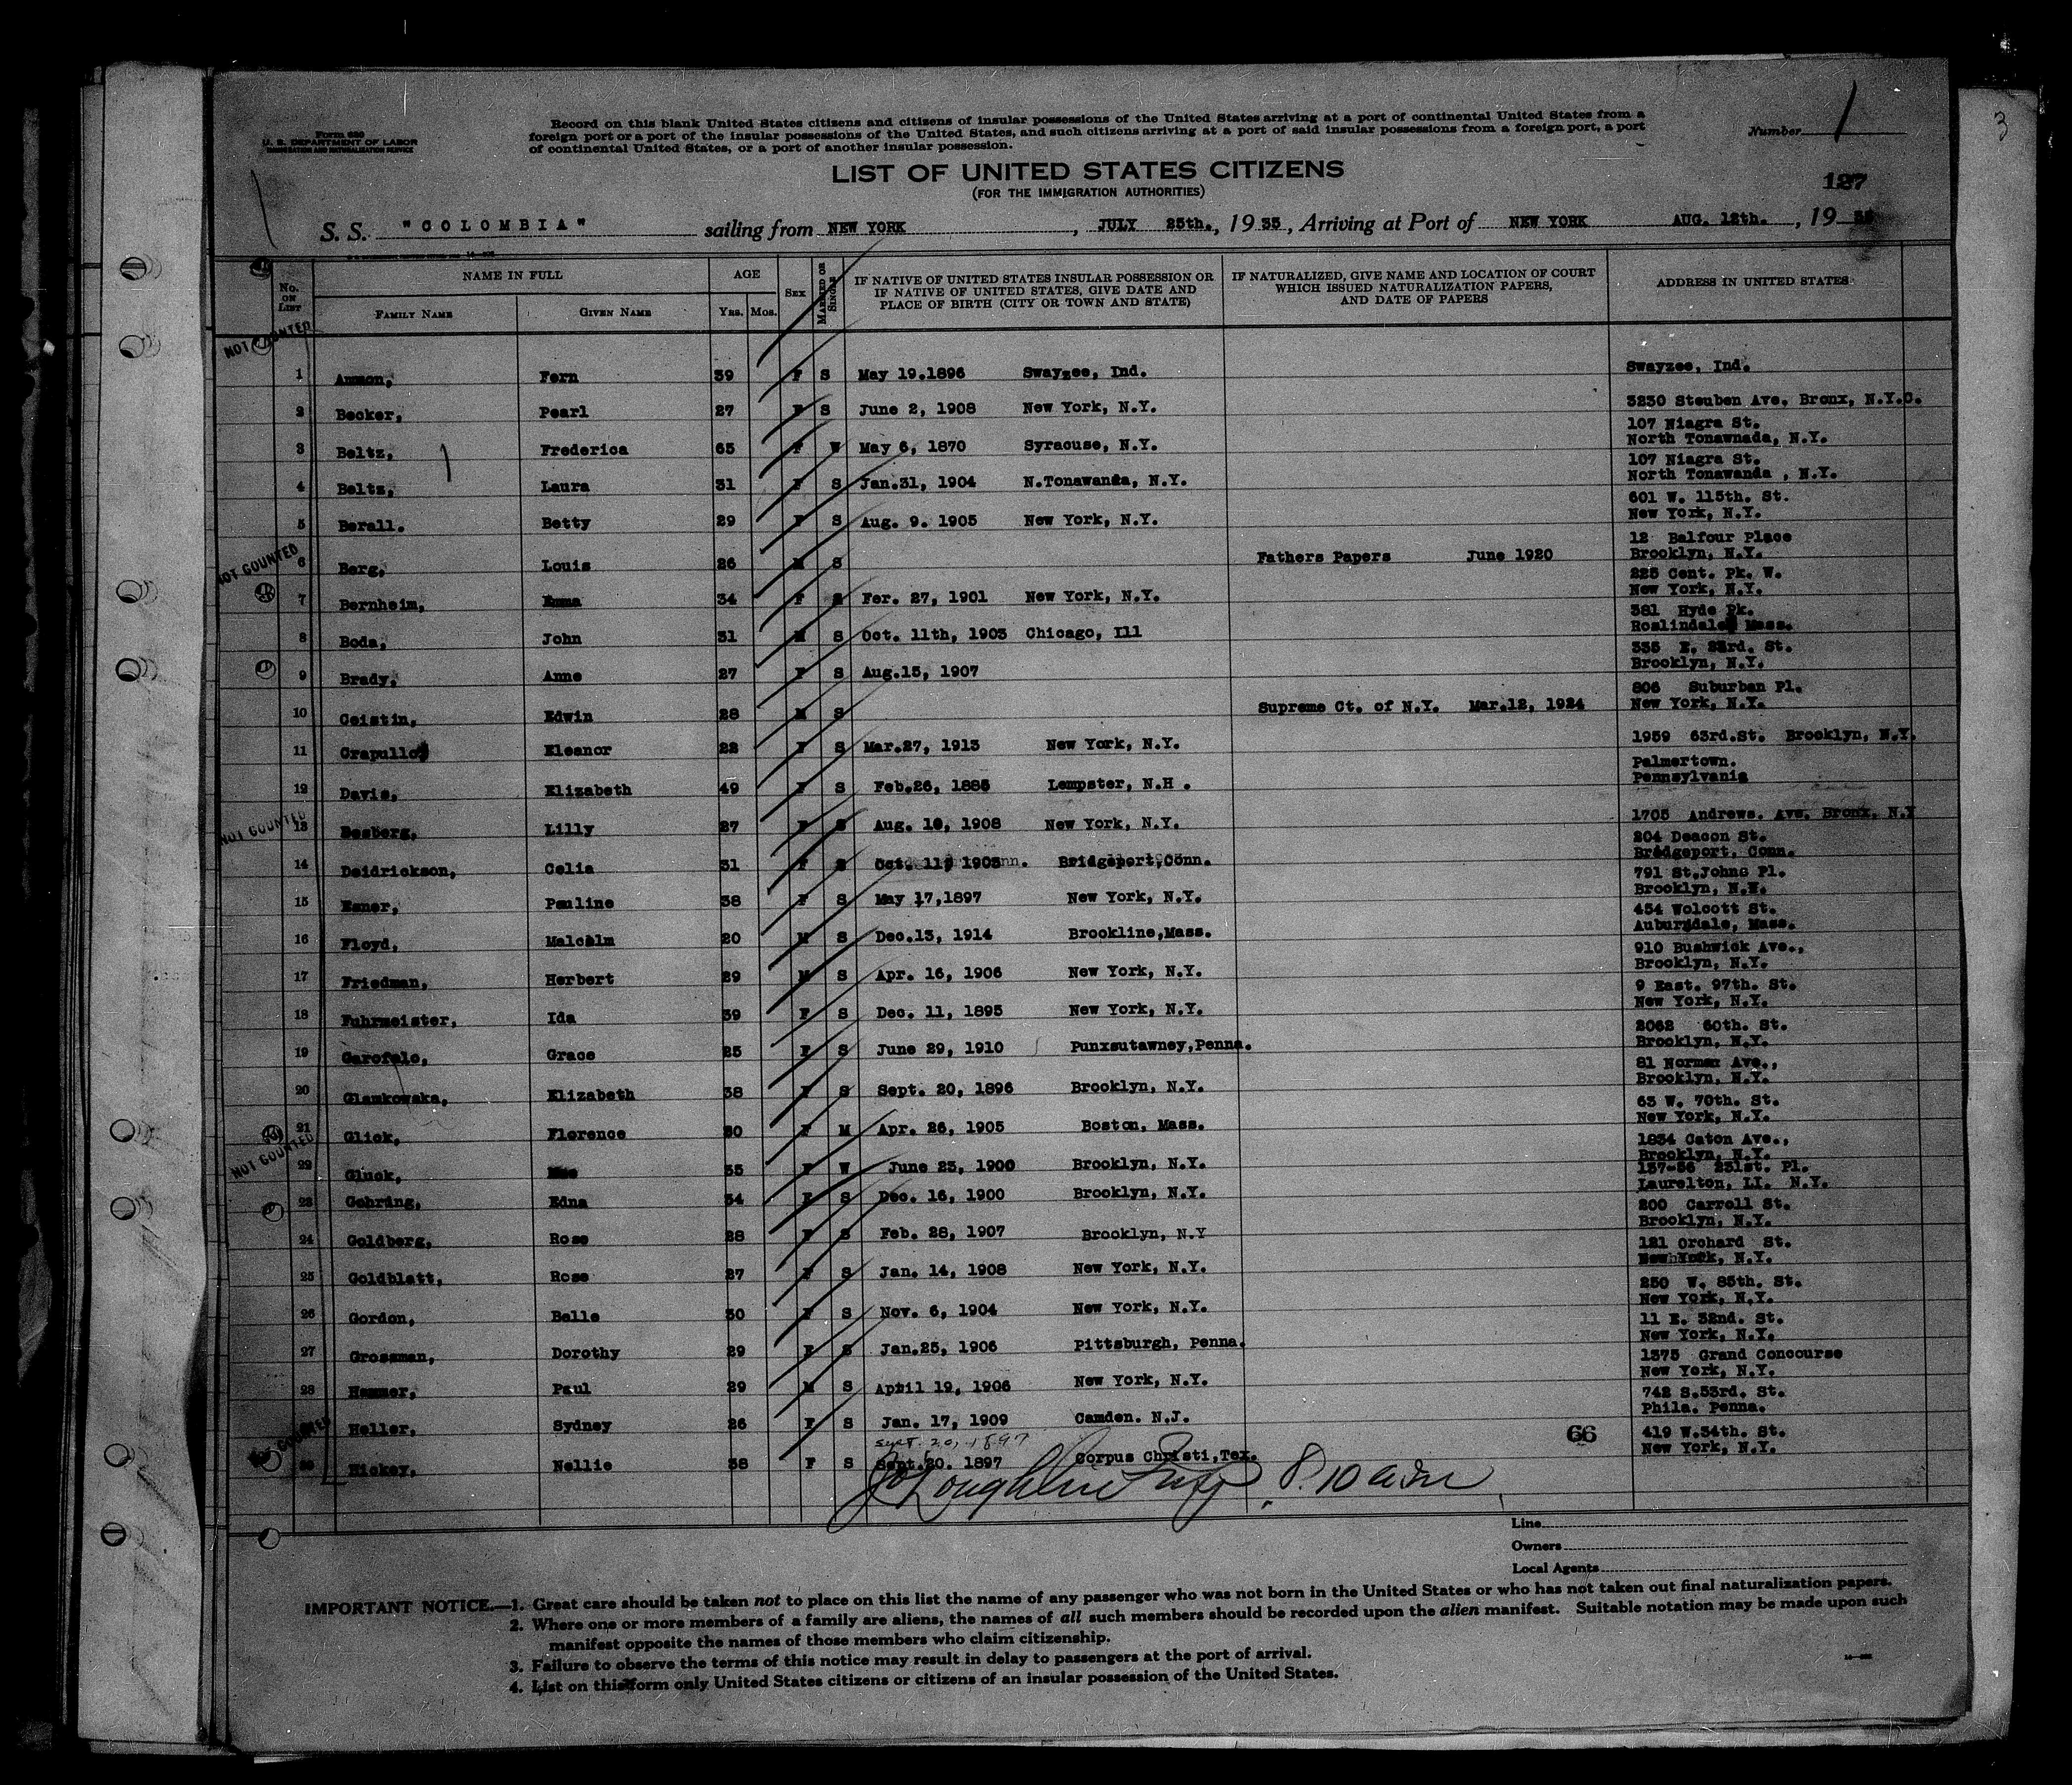 Form 630
U. S. DEPARTMENT OF LABOR
IMMIGRATION AND NATURALIZATION SERVICE
Record on this blank United States citizens and citizens of insular possessions of the United States arriving at a port of continental United States from a
foreign port or a port of the insular possessions of the United States, and such citizens arriving at a port of said insular possessions from a foreign port, a port
of continental United States, or a port of another insular possession.
Number 1
3
LIST OF UNITED STATES CITIZENS
(FOR THE IMMIGRATION AUTHORITIES)
127
S. S. "COLOMBIA" sailing from NEW YORK, JULY 25th., 1935, Arriving at Port of NEW YORK AUG. 12th., 19
No. ON LIST NAME IN FULL AGE SEX MARRIED OR SINGLE IF NATIVE OF UNITED STATES INSULAR POSSESSION OR IF NATIVE OF UNITED STATES, GIVE DATE AND PLACE OF BIRTH (CITY OR TOWN AND STATE) IF NATURALIZED, GIVE NAME AND LOCATION OF COURT WHICH ISSUED NATURALIZATION PAPERS, AND DATE OF PAPERS ADDRESS IN UNITED STATES
FAMILY NAME GIVEN NAME YRS. MOS.
NOT COUNTED
1 Ammon, Fern 39 F S May 19.1896 Swayzee, Ind. Swayzee, Ind.
2 Becker, Pearl 27 F S June 2, 1908 New York, N.Y. 3230 Steuben Ave. Bronx, N.Y.C.
3 Beltz, Frederica 65 F W May 6, 1870 Syracuse, N.Y. 107 Niagra St. North Tonawnada, N.Y.
4 Beltz, Laura 31 F S Jan.31, 1904 N.Tonawanda, N.Y. 107 Niagra St. North Tonawanda , N.Y.
5 Berall. Betty 29 F S Aug. 9. 1905 New York, N.Y. 601 W. 115th. St. New York, N.Y.
NOT COUNTED
6 Berg, Louis 26 M S Fathers Papers June 1920 12 Balfour Place Brooklyn, N.Y.
7 Bernheim, Emma 34 F S Fer. 27, 1901 New York, N.Y. 225 Cent. Pk. W. New York, N.Y.
8 Boda, John 31 M S Oct. 11th, 1903 Chicago, Ill 381 Hyde Pk. Roslindale Mass.
9 Brady, Anne 27 F S Aug.15, 1907 335 E. 23rd. St. Brooklyn, N.Y.
10 Ceistin, Edwin 28 M S Supreme Ct. of N.Y. Mar.12, 1924 806 Suburban Pl. New York, N.Y.
11 Crapullo Eleanor 22 F S Mar.27, 1913 New York, N.Y. 1959 63rd.St. Brooklyn, N.Y.
12 Davis, Elizabeth 49 F S Feb.26, 1885 Lempster, N.H . Palmertown. Pennsylvania
NOT COUNTED
13 Desberg, Lilly 27 F S Aug. 10, 1908 New York, N.Y. 1705 Andrews. Ave. Bronx, N.Y
14 Deidrickson, Celia 31 F S Oct. 11, 1903 Bridgeport,Conn. 204 Deacon St. Bridgeport, Conn.
15 Esner, Pauline 38 F S May 17,1897 New York, N.Y. 791 St.Johns Pl. Brooklyn, N.Y.
16 Floyd, Malcolm 20 M S Dec.13, 1914 Brookline,Mass. 454 Wolcott St. Auburndale, Mass.
17 Friedman, Herbert 29 M S Apr. 16, 1906 New York, N.Y. 910 Bushwick Ave., Brooklyn, N.Y.
18 Fuhrmeister, Ida 39 F S Dec. 11, 1895 New York, N.Y. 9 East. 97th. St. New York, N.Y.
19 Garofalo, Grace 25 F S June 29, 1910 Punxsutawney,Penna. 2062 60th. St. Brooklyn, N.Y.
20 Glamkowska, Elizabeth 38 F S Sept. 20, 1896 Brooklyn, N.Y. 81 Norman Ave., Brooklyn, N.Y.
21 Glick, Florence 30 F M Apr. 26, 1905 Boston, Mass. 63 W. 70th. St. New York, N.Y.
NOT COUNTED
22 Gluck, 35 F W June 23, 1900 Brooklyn, N.Y. 1834 Caton Ave., Brooklyn, N.Y.
23 Gehring, Edna 34 F S Dec. 16, 1900 Brooklyn, N.Y. 137-36 231st. Pl. Laurelton, LI. N.Y.
24 Goldberg, Rose 28 F S Feb. 28, 1907 Brooklyn, N.Y 200 Carroll St. Brooklyn, N.Y.
25 Goldblatt, Rose 27 F S Jan. 14, 1908 New York, N.Y. 121 Orchard St. New York, N.Y.
26 Gordon, Belle 30 F S Nov. 6, 1904 New York, N.Y. 250 W. 85th. St. New York, N.Y.
27 Grossman, Dorothy 29 F S Jan.25, 1906 Pittsburgh, Penna. 11 E. 32nd. St. New York, N.Y.
28 Hammer, Paul 29 M S April 19, 1906 New York, N.Y. 1375 Grand Concourse New York, N.Y.
Heller, Sydney 26 F S Jan. 17, 1909 Camden. N.J. 742 S.53rd. St. Phila. Penna.
NOT COUNTED
Sept. 20, 1897
30 Hickey, Nellie 38 F S Sept.20. 1897 Corpus Christi,Tex. 66 419 W.34th. St. New York, N.Y.
Loughlin Insp 8.10 am
Line
Owners
Local Agents
IMPORTANT NOTICE.—1. Great care should be taken not to place on this list the name of any passenger who was not born in the United States or who has not taken out final naturalization papers.
2. Where one or more members of a family are aliens, the names of all such members should be recorded upon the alien manifest. Suitable notation may be made upon such
manifest opposite the names of those members who claim citizenship.
3. Failure to observe the terms of this notice may result in delay to passengers at the port of arrival.
4. List on this form only United States citizens or citizens of an insular possession of the United States.